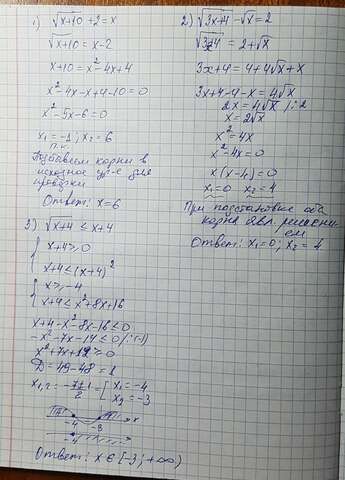 1) √x+10 + 2 = x
√x+10 = x-2
x+10 = x²-4x+4
x²-4x-x+4-10=0
x²-5x-6=0
x₁ = -1 ; x₂ = 6
п.к.
корни в
исходное ур-е для
проверки
Ответ: x=6
2) √3x+4 - √x = 2
√3x+4 = 2+√x
3x+4 = 4+4√x+x
3x+4-4-x = 4√x
2x = 4√x /:2
x = 2√x
x² = 4x
x²-4x=0
x(x-4)=0
x₁=0 x₂=4
При подстановке оба
корня явл. решени-
ем
Ответ: x₁=0; x₂=4
3) √x+4 ≤ x+4
{ x+4≥0
x+4≤(x+4)²
{ x≥-4
x+4≤x²+8x+16
x+4-x²-8x-16≤0
-x²-7x-12≤0 /:(-1)
x²+7x+12≥0
D=49-48=1
x₁,₂ = -7±1/2 = [ x₁=-4
x₂=-3
-4 -3 x
-4
Ответ: x∈[-3;+∞)